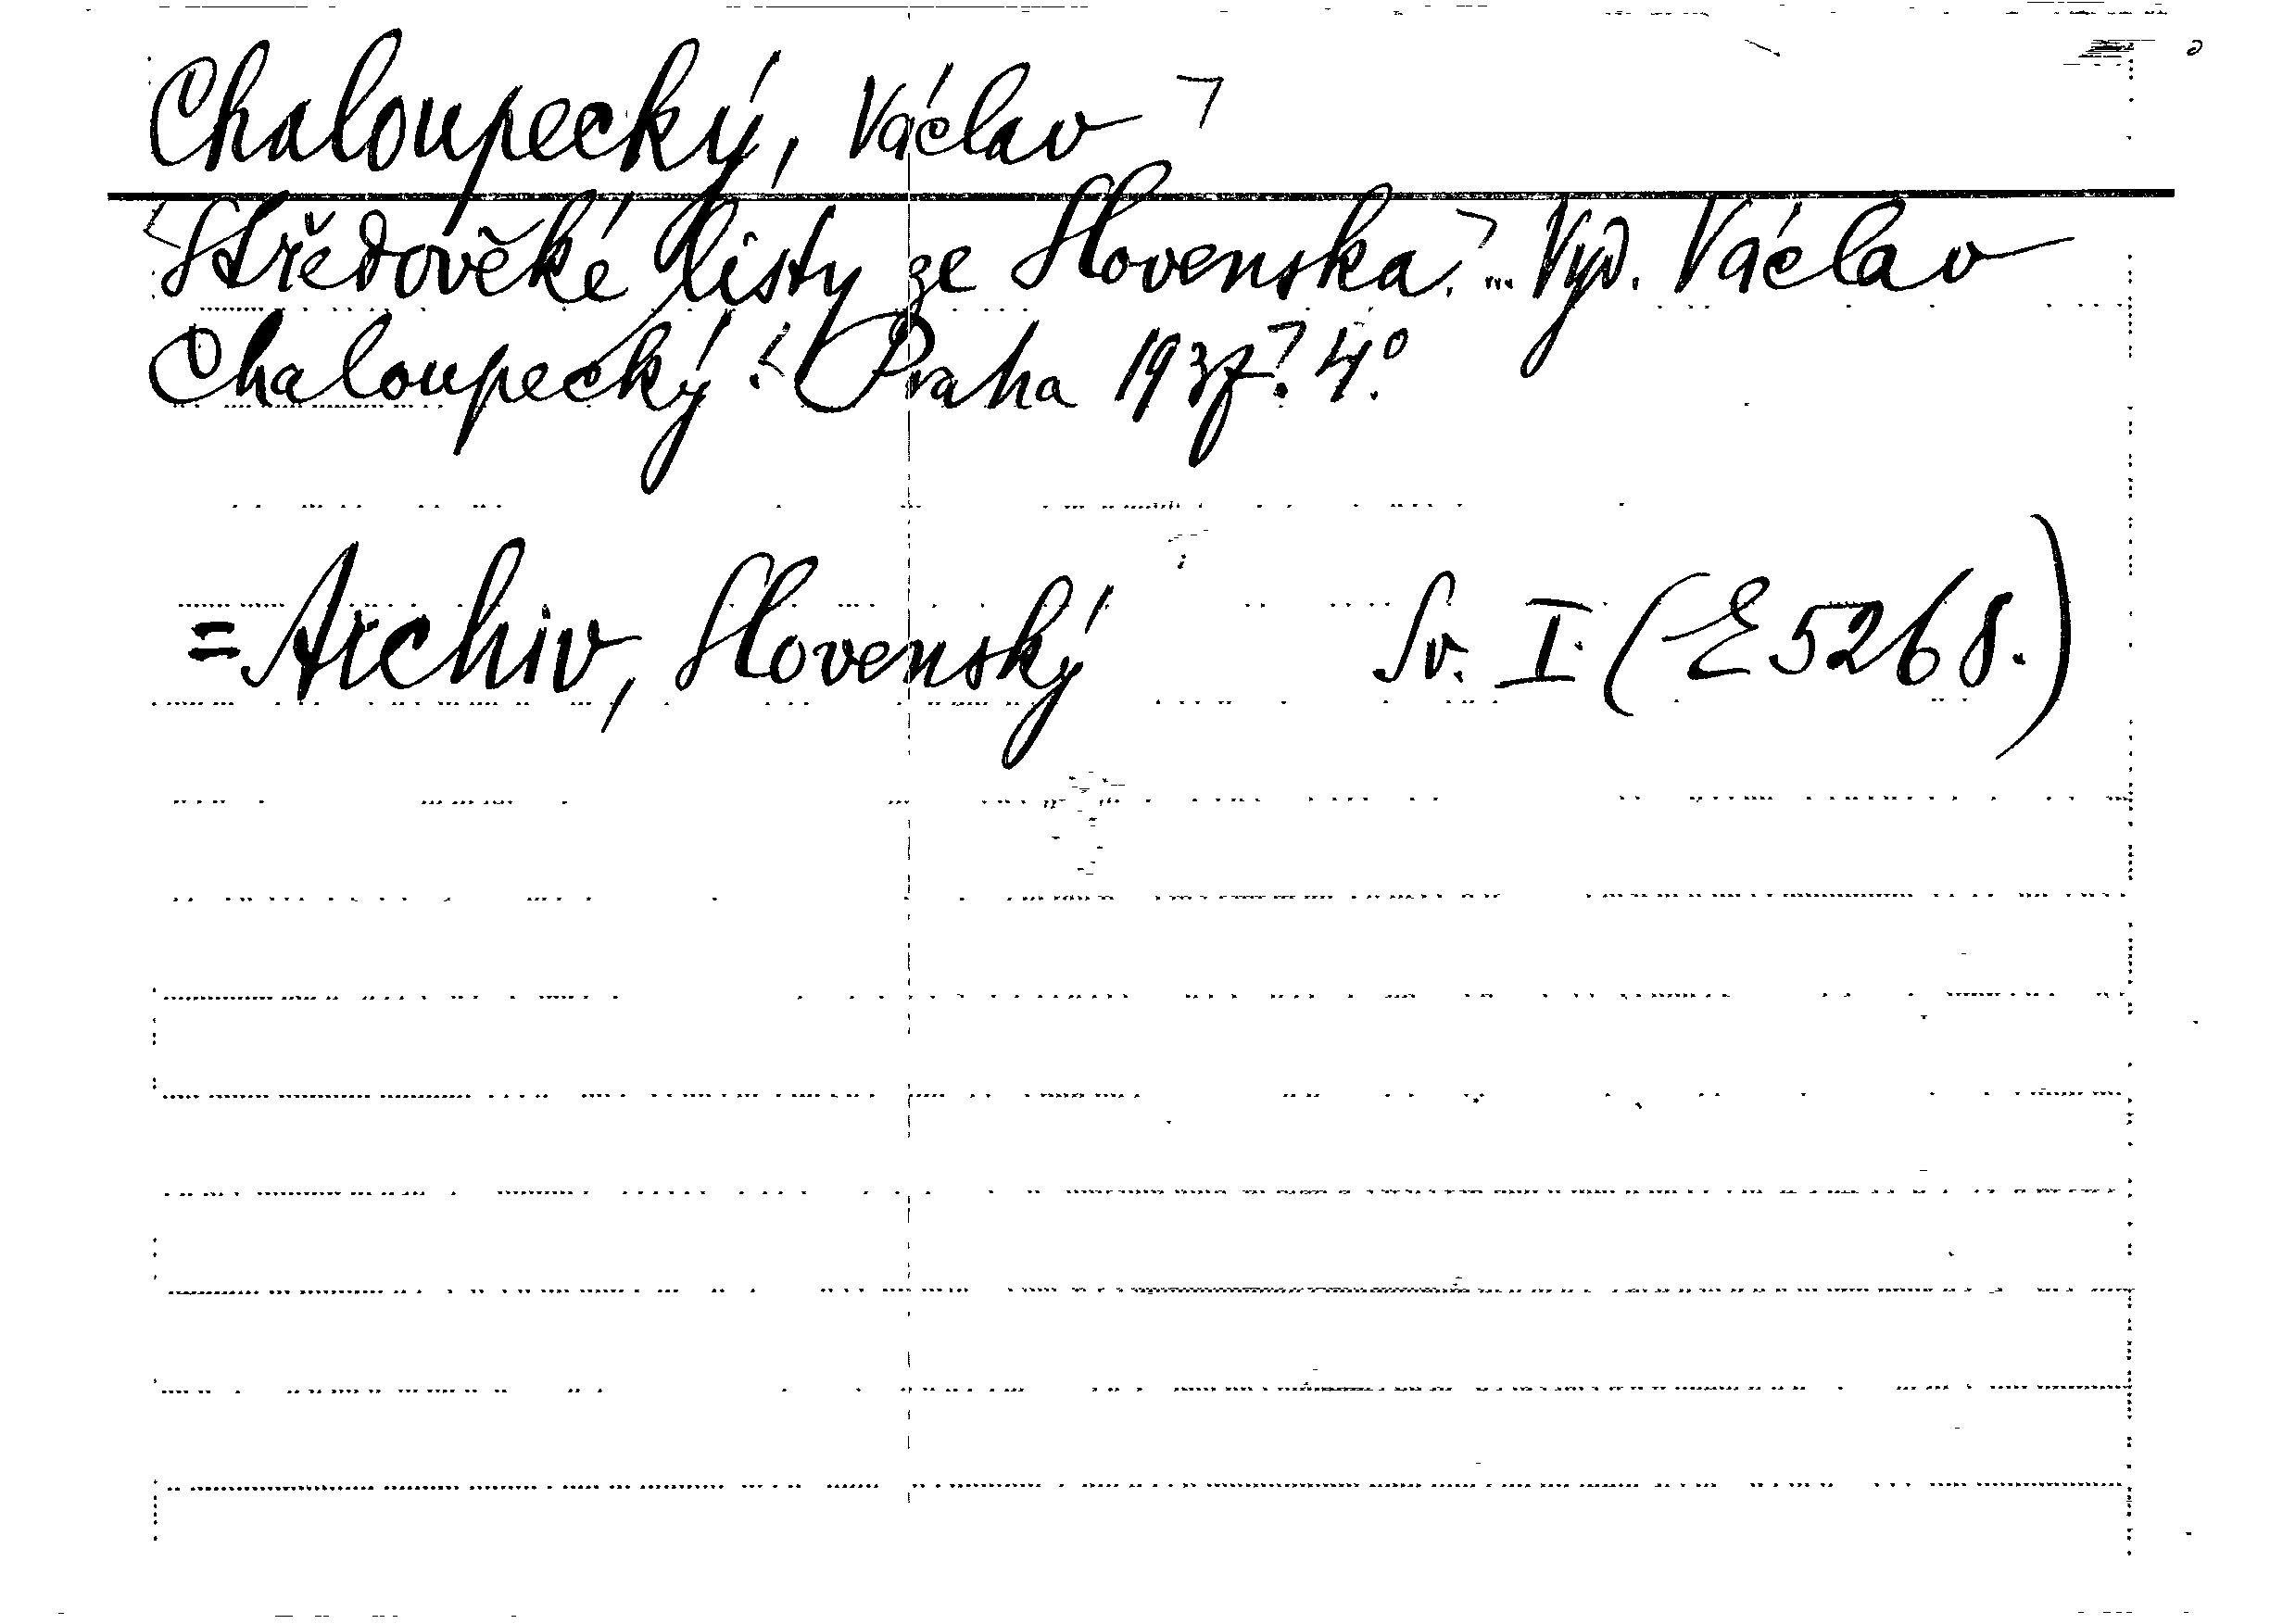 Chaloupecký, Václav
Středověké listy ze Slovenska. ... Vyd. Václav
Chaloupecký. Praha 1937. 4°.
= Archiv, Slovenský Sv. I. (E 5268.)